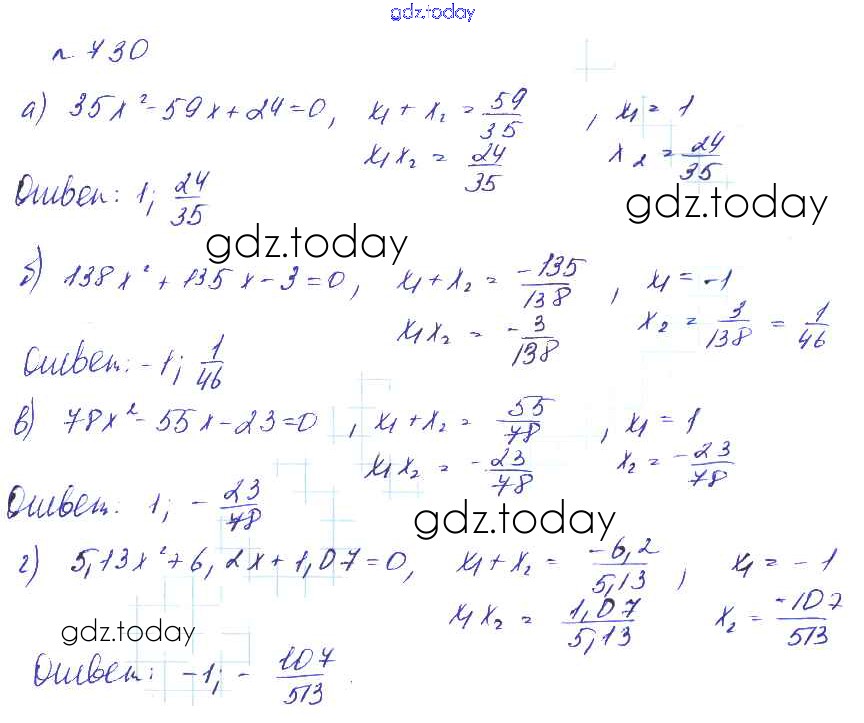 gdz.today
n 730
а) 35x² - 59x + 24 = 0, x₁ + x₂ = 59/35, x₁ = 1
x₁x₂ = 24/35 x₂ = 24/35
Ответ: 1; 24/35
gdz.today
gdz.today
б) 138x² + 135x - 3 = 0, x₁ + x₂ = -135/138, x₁ = -1
x₁x₂ = -3/138 x₂ = 3/138 = 1/46
Ответ: -1; 1/46
в) 78x² - 55x - 23 = 0, x₁ + x₂ = 55/78, x₁ = 1
x₁x₂ = -23/78 x₂ = -23/78
Ответ: 1; -23/78
gdz.today
г) 5,13x² + 6,2x + 1,07 = 0, x₁ + x₂ = -6,2/5,13, x₁ = -1
x₁x₂ = 1,07/5,13 x₂ = -107/513
gdz.today
Ответ: -1; -107/513.